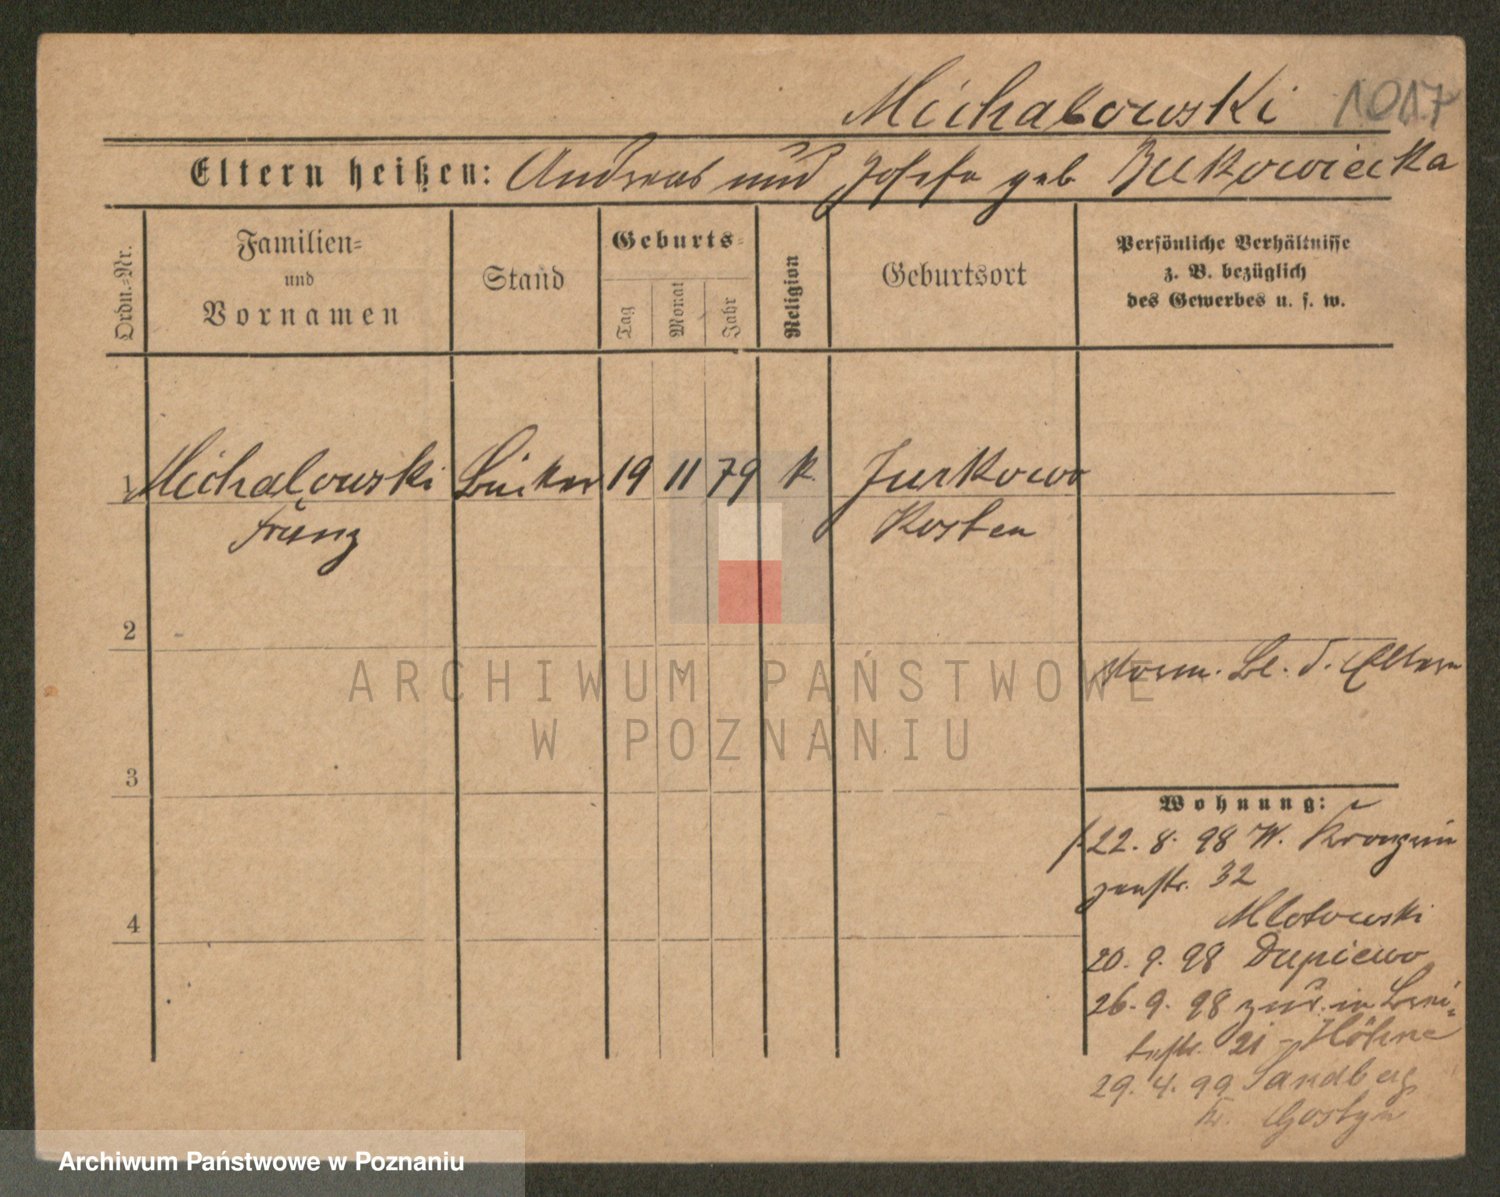 Michalowski 1017
Eltern heißen: Andreas und Josefa geb Bukowiecka
Ordn.-Nr.
Familien-
und
Vornamen
Stand
Geburts-
Tag
Monat
Jahr
Religion
Geburtsort
Persönliche Verhältnisse
z. B. bezüglich
des Gewerbes u. s. w.
1 Michalowski Bäcker 19 11 79 k. Jurkowo
Franz Kosten
2
Eltern
3
Wohnung:
22. 8. 98 W. Kronprin
zenstr. 32
Mlotowski
4
20. 9. 98 Dupiewo
26. 9. 98 zur. in
21 - Höhne
29. 4. 99 Sandberg
Kr. Gostyn
ARCHIWUM PAŃSTWOWE
W POZNANIU
Archiwum Państwowe w Poznaniu